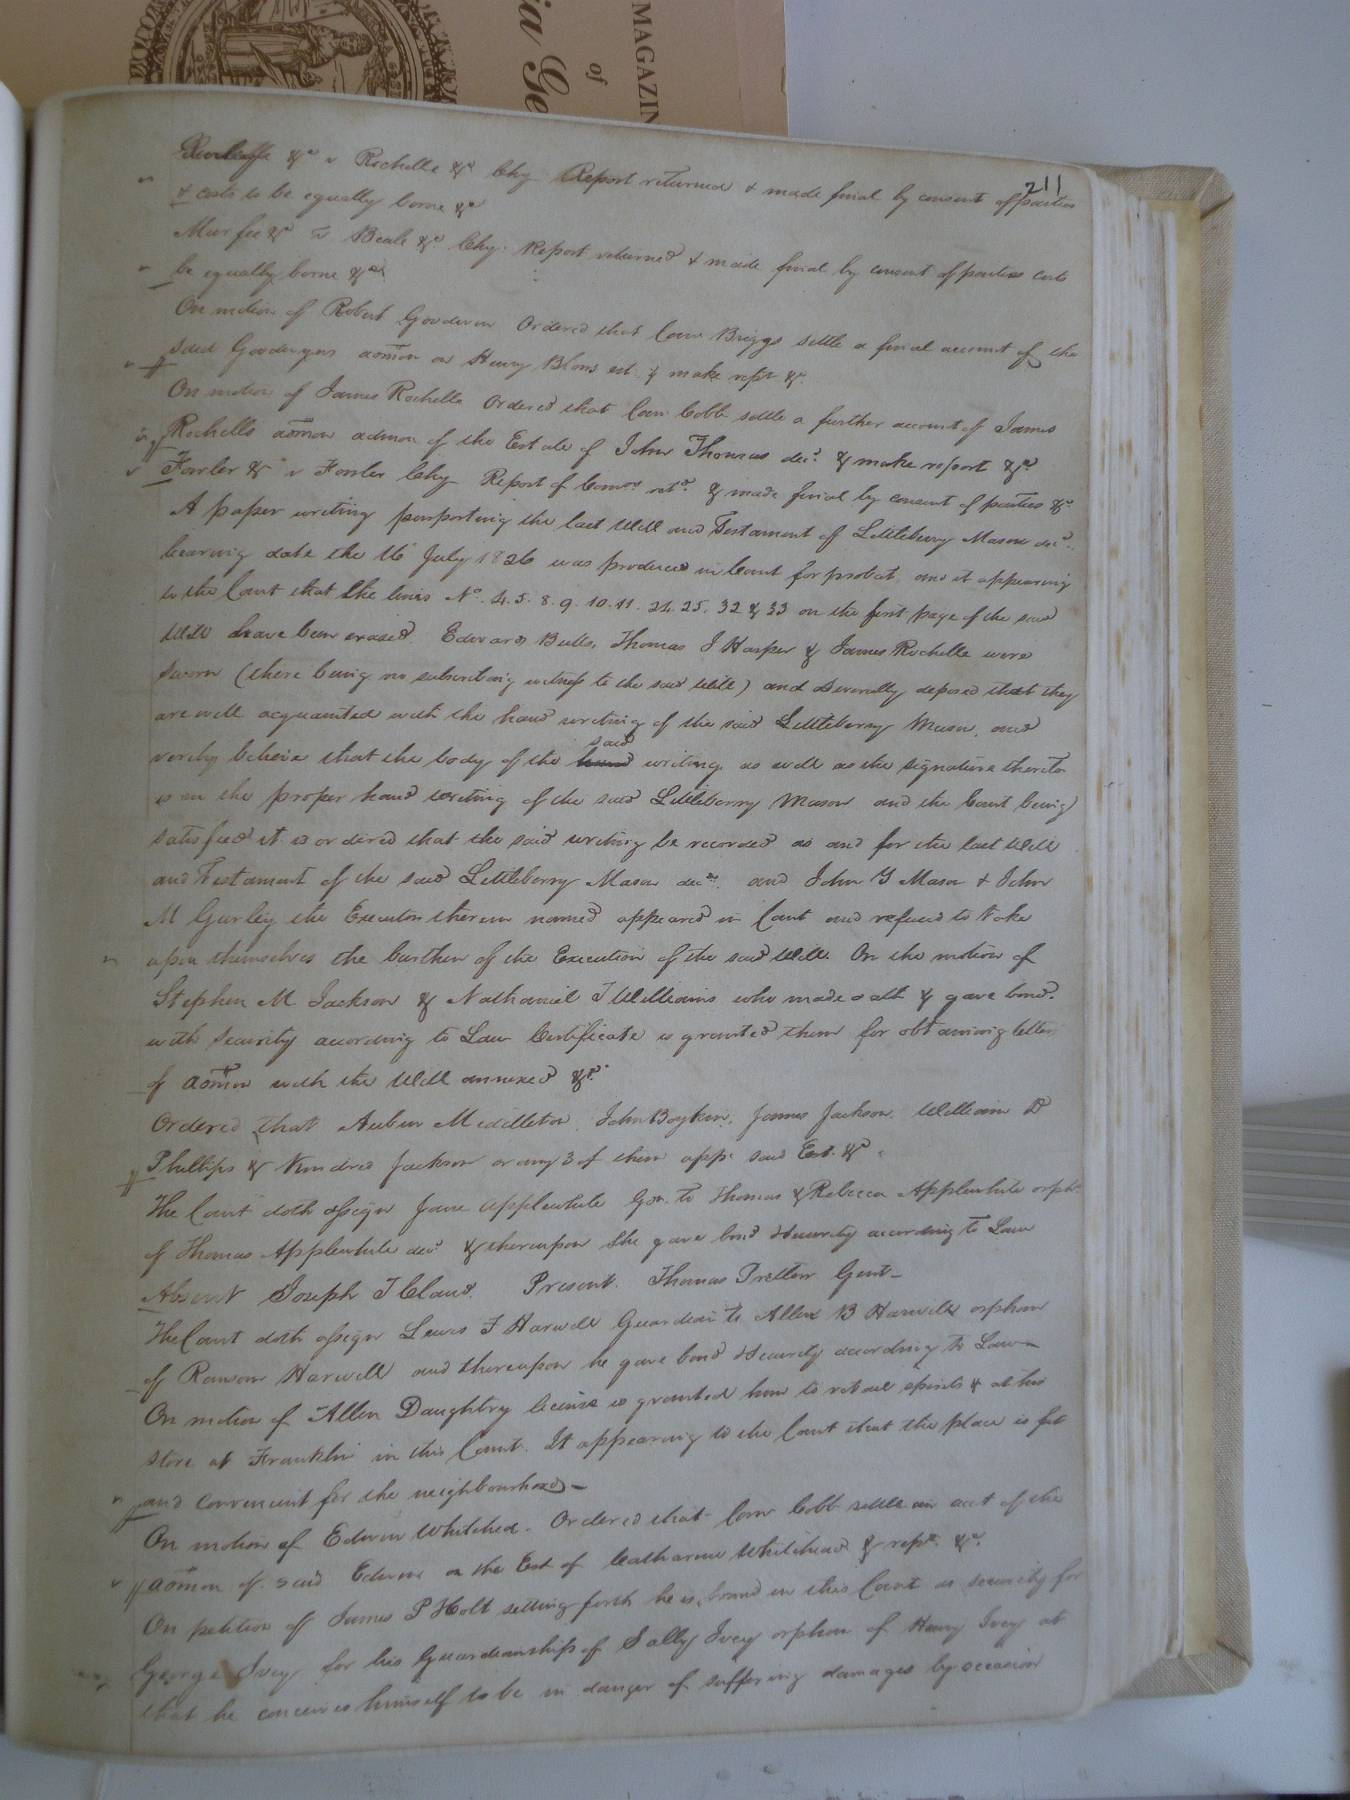 MAGAZIN
of
ia Ge
211
&c v Rochelle &c Chy Report returned & made final by consent of parties
& costs to be equally borne &c
Murfee &c v Beale &c Chy. Report returned & made final by consent of parties costs
be equally borne &c
On motion of Robert Goodwin Ordered that Comr Briggs settle a final account of the
said Goodwyns admon on Henry Blows est. & make rept &c
On motion of James Rochelle Ordered that Comr Cobb settle a further account of James
Rochells admon admon of the Estate of John Thomas decd. & make report &c
Fowler &c v Fowler Chy Report of Comrs retd. & made final by consent of parties &c
A paper writing purporting the last Will and Testament of Littleberry Mason decd.
bearing date the 16 July 1826 was produced in Court for probat, and it appearing
to the Court that the lines No. 4. 5. 8. 9. 10. 11. 24. 25. 32 & 33 on the first page of the said
Will have been erased. Edward Butts, Thomas J Harper & James Rochelle were
sworn (there being no subscribing witness to the said Will) and severally deposed that they
are well acquainted with the hand writing of the said Littleberry Mason, and
verily believe that the body of the said writing as well as the signature thereto
is in the proper hand writing of the said Littleberry Mason and the Court being
satisfied it is ordered that the said writing be recorded as and for the last Will
and Testament of the said Littleberry Mason decd. and John Y Mason & John
M Gurley the Executors therein named appeared in Court and refused to take
upon themselves the burthen of the Execution of the said Will. On the motion of
Stephen M Jackson & Nathaniel T Williams who made oath & gave bond
with security according to Law Certificate is granted them for obtaining letters
of admon with the Will annexed &c.
Ordered that Auben Middleton, John Boykin, James Jackson, William D
Phillips & Kindred Jackson or any 3 of them appr said Est. &c
The Court doth assign Jane Applewhite Gdn. to Thomas & Rebecca Applewhite orphs
of Thomas Applewhite decd & thereupon she gave bond & security according to Law
Absent Joseph T Claud. Present. Thomas Pretlow Gent
The Court doth assign Lewis F Harwell Guardian to Allen B Harwell orphan
of Ransom Harwell and thereupon he gave bond & security according to Law
On motion of Allen Daughtry license is granted him to retail spirits & at his
store at Franklin in this County. It appearing to the Court that the place is fit
and convenient for the neighbourhood
On motion of Edwin Whithed. Ordered that Comr Cobb settle an acct of the
admon of said Edwin on the Est of Catharine Whitehead & rept. &c.
On petition of James P Holt setting forth he is bound in this Court as security for
George Ivey for his Guardianship of Sally Ivey orphan of Henry Ivey
that he conceives himself to be in danger of suffering damages by occasion